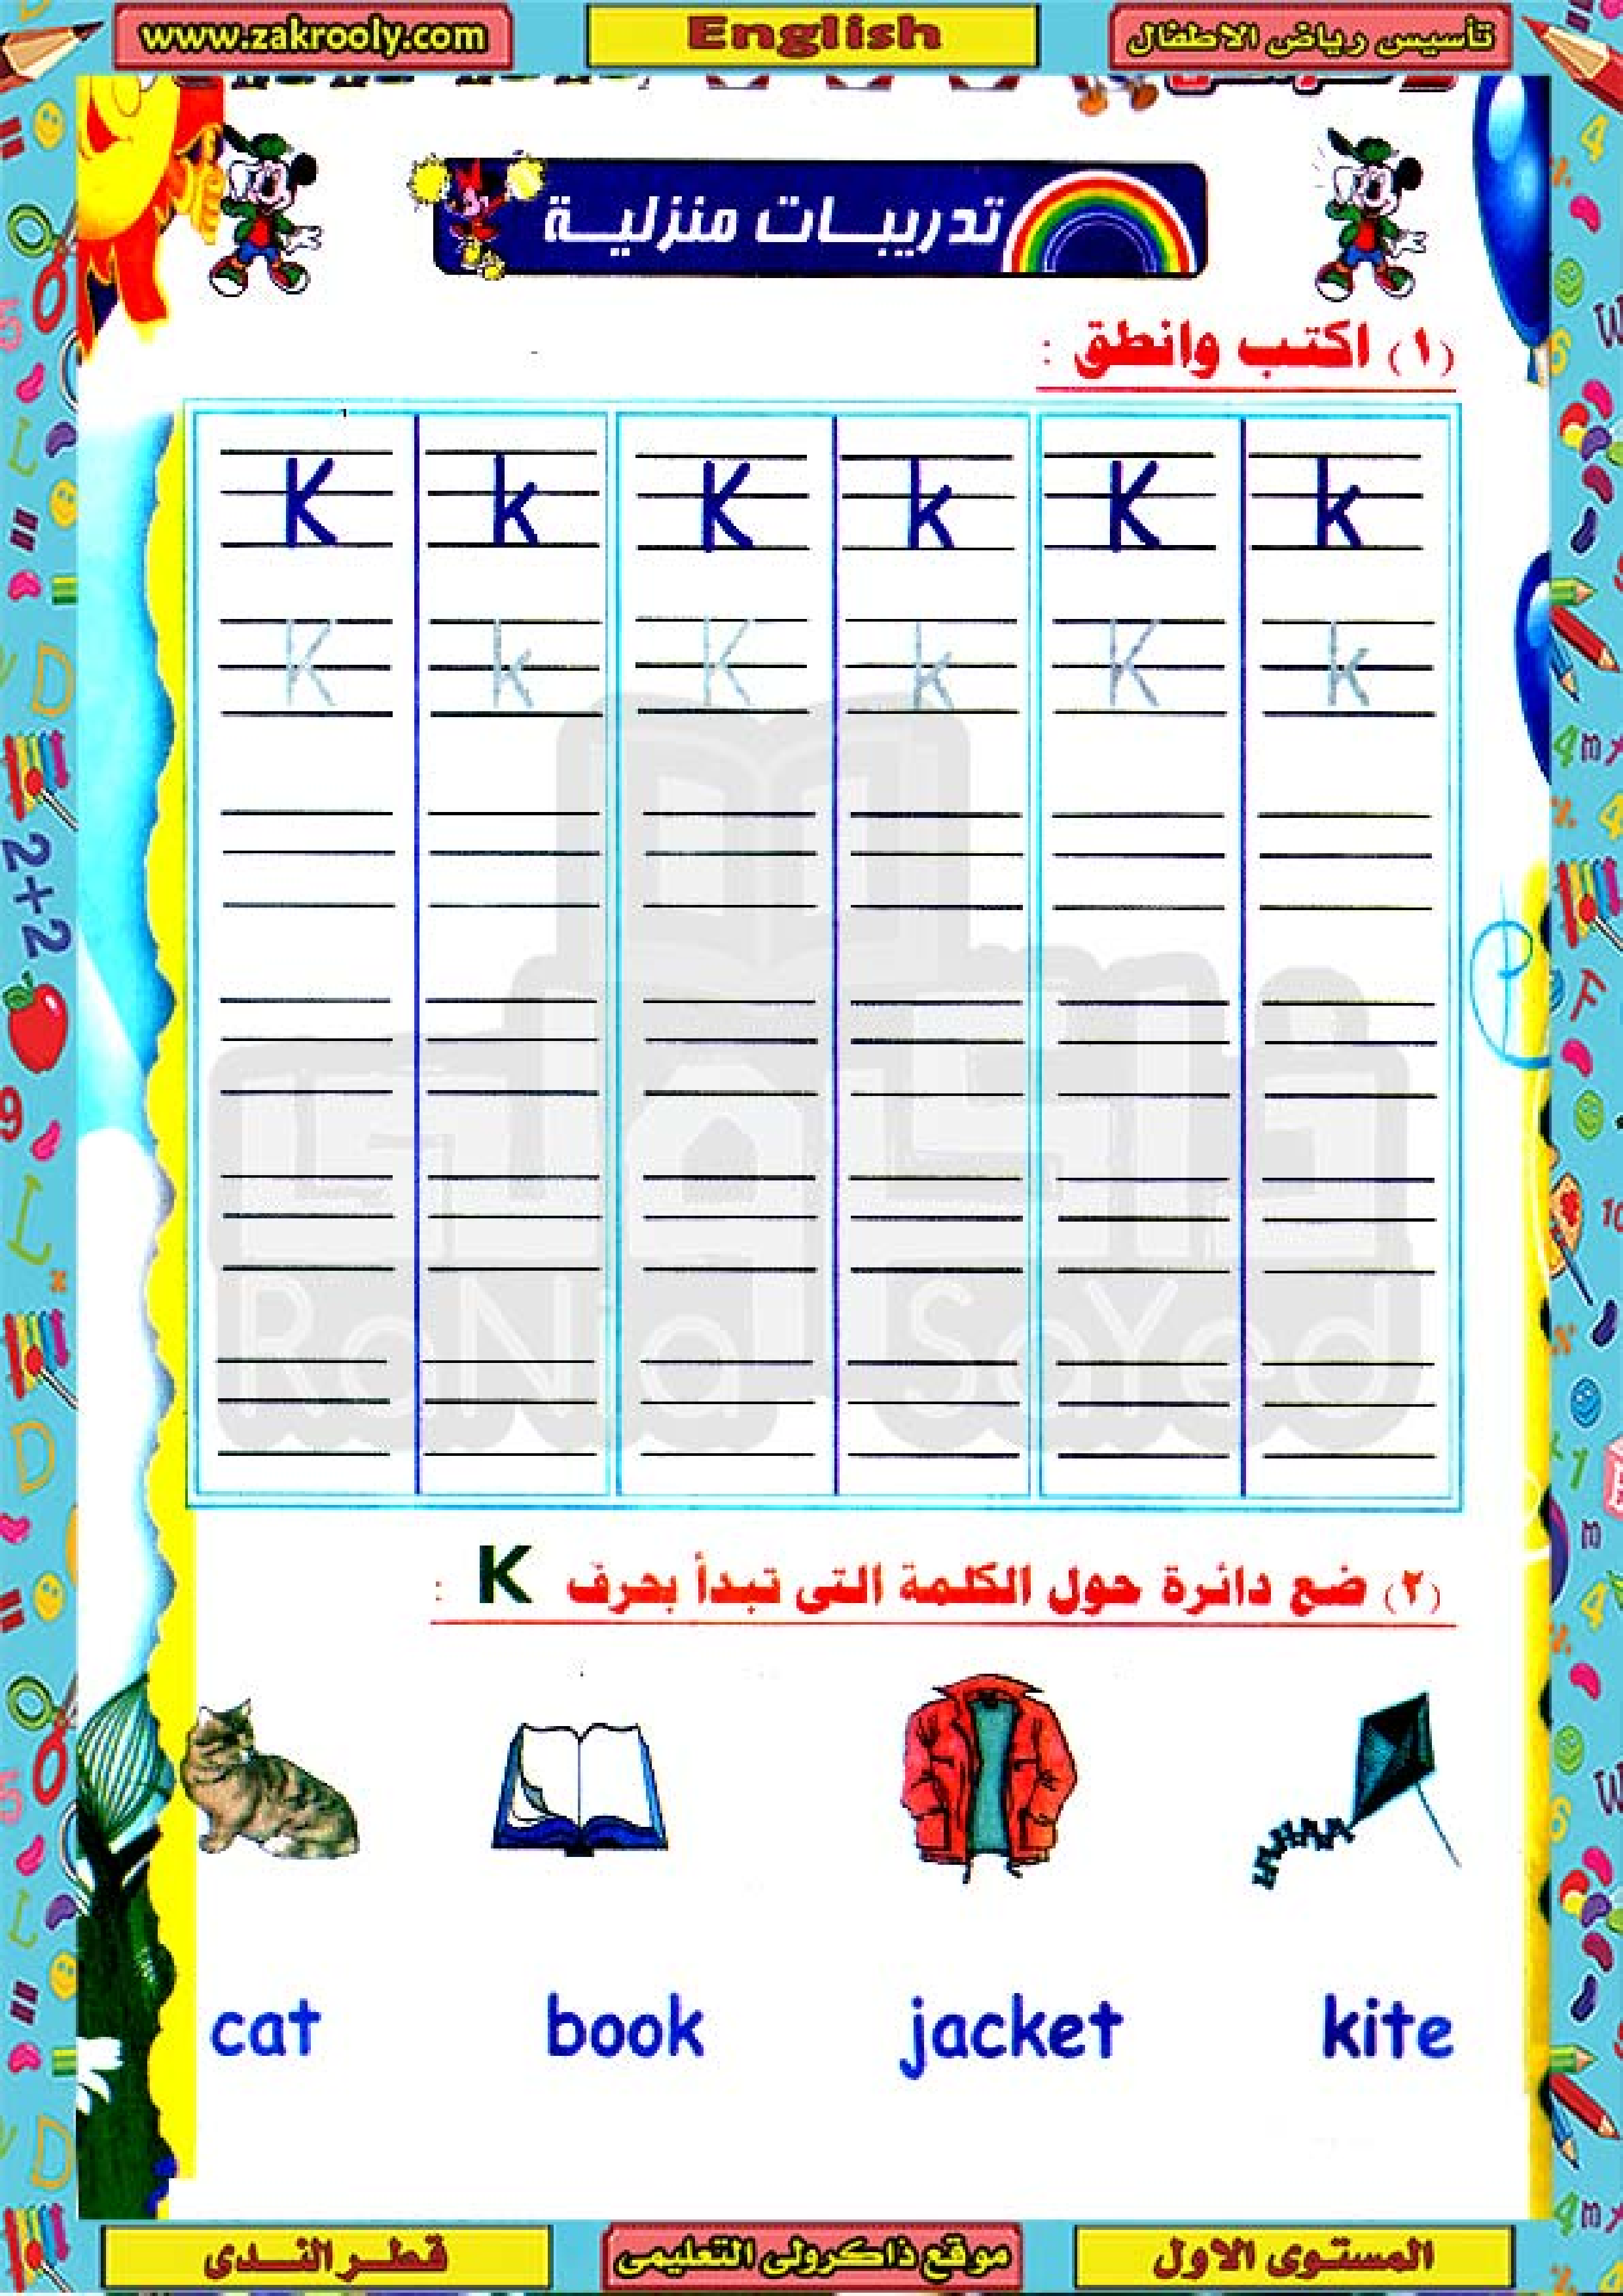 www.zakrooly.com English تأسيس رياض الاطفال
تدريبات منزلية
(١) اكتب وانطق :
K k K k K k
K k K k K k
RaNia SaYed
(٢) ضع دائرة حول الكلمة التى تبدأ بحرف K :
cat book jacket kite
قطر الندى موقع ذاكرولى التعليمى المستوى الاول